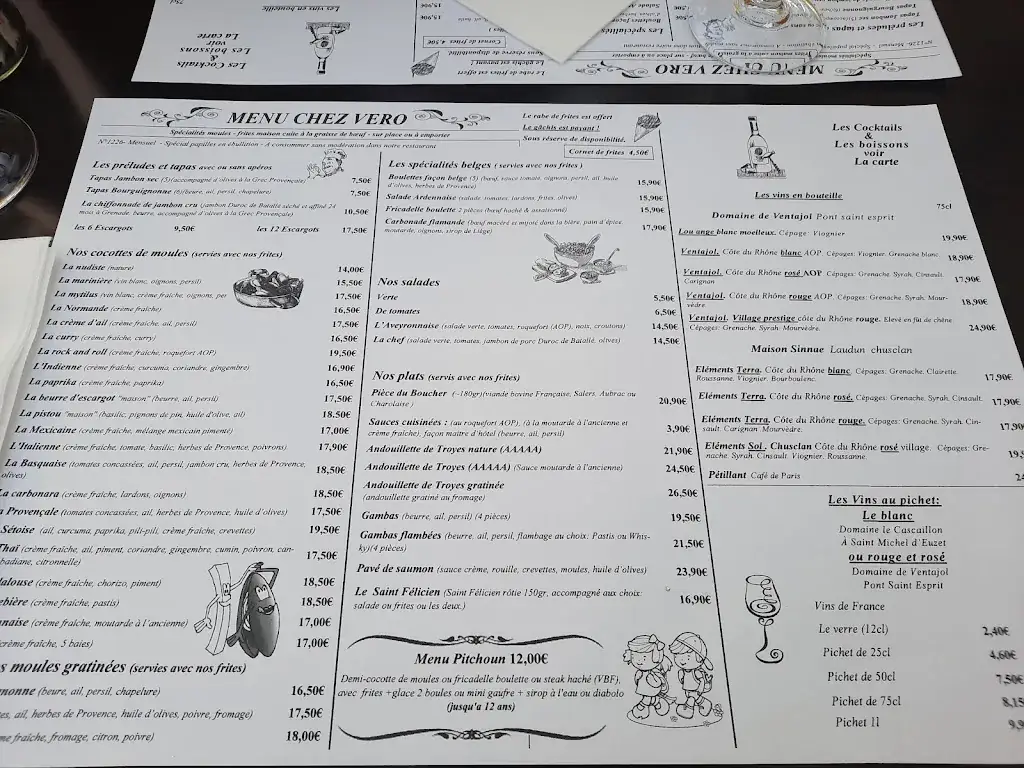 MENU CHEZ VERO
Spécialités moules - frites maison cuite à la graisse de bœuf - sur place ou à emporter
N°1226- Mensuel - Spécial papilles en ébullition - A consommer sans modération dans notre restaurant
Le rabe de frites est offert
Le gâchis est payant !
Sous réserve de disponibilité.
Cornet de frites 4,50€
Les préludes et tapas avec ou sans apéros
Tapas Jambon sec (5)(accompagné d'olives à la Grec Provençale) 7,50€
Tapas Bourguignonne (6)(beure, ail, persil, chapelure) 7,50€
La chiffonnade de jambon cru (jambon Duroc de Batallé séché et affiné 24
mois à Grenade, beurre, accompagné d'olives à la Grec Provençale) 10,50€
les 6 Escargots 9,50€ les 12 Escargots 17,50€
Nos cocottes de moules (servies avec nos frites)
La nudiste (nature) 14,00€
La marinière (vin blanc, oignons, persil) 15,50€
La mytilus (vin blanc, crème fraîche, oignons, per 17,50€
La Normande (crème fraîche) 16,50€
La crème d'ail (crème fraîche, ail, persil) 17,50€
La curry (crème fraîche, curry) 16,50€
La rock and roll (crème fraîche, roquefort AOP) 19,50€
L'Indienne (crème fraîche, curcuma, coriandre, gingembre) 16,90€
La paprika (crème fraîche, paprika) 16,50€
La beurre d'escargot "maison" (beurre, ail, persil) 17,50€
La pistou "maison" (basilic, pignons de pin, huile d'olive, ail) 18.50€
La Mexicaine (crème fraîche, mélange mexicain pimenté) 17,00€
L'Italienne (crème fraîche, tomate, basilic, herbes de Provence, poivrons) 17,90€
La Basquaise (tomates concassées, ail, persil, jambon cru, herbes de Provence,
olives) 18,50€
La carbonara (crème fraîche, lardons, oignons) 18,50€
Provençale (tomates concassées, ail, herbes de Provence, huile d'olives) 17,50€
Sétoise (ail, curcuma, paprika, pili-pili, crème fraîche, crevettes) 19,50€
Thaï (crème fraîche, ail, piment, coriandre, gingembre, cumin, poivron, can-
badiane, citronnelle) 17,50€
alouse (crème fraîche, chorizo, piment) 18,50€
ebière (crème fraîche, pastis) 18,50€
naise (crème fraîche, moutarde à l'ancienne) 17,00€
crème fraîche, 5 baies) 17,00€
s moules gratinées (servies avec nos frites)
gnonne (beure, ail, persil, chapelure) 16,50€
es, ail, herbes de Provence, huile d'olives, poivre, fromage) 17,50€
me fraîche, fromage, citron, poivre) 18,00€
Les spécialités belges ( servies avec nos frites )
Boulettes façon belge (5) (bœuf, sauce tomate, oignons, persil, ail, huile
d'olives, herbes de Provence) 15,90€
Salade Ardennaise (salade, tomates, lardons, frites, olives) 15,90€
Fricadelle boulette 2 pièces (bœuf haché & assaisonné) 15,90€
Carbonade flamande (bœuf macéré et mijoté dans la bière, pain d'épice,
moutarde, oignons, sirop de Liège) 17,90€
Nos salades
Verte 5,50€
De tomates 6,50€
L'Aveyronnaise (salade verte, tomates, roquefort (AOP), noix, croutons) 14,50€
La chef (salade verte, tomates, jambon de porc Duroc de Batallé, olives) 14,50€
Nos plats (servis avec nos frites)
Pièce du Boucher (~180gr)(viande bovine Française, Salers, Aubrac ou
Charolaise ) 20,90€
Sauces cuisinées : (au roquefort AOP), (à la moutarde à l'ancienne et
crème fraîche), façon maitre d'hôtel (beurre, ail, persil) 3,90€
Andouillette de Troyes nature (AAAAA) 21,90€
Andouillette de Troyes (AAAAA) (Sauce moutarde à l'ancienne) 24,50€
Andouillette de Troyes gratinée
(andouillette gratiné au fromage) 26,50€
Gambas (beurre, ail, persil) (4 pièces) 19,50€
Gambas flambées (beurre, ail, persil, flambage au choix: Pastis ou Whis-
ky)(4 pièces) 21,50€
Pavé de saumon (sauce crème, rouille, crevettes, moules, huile d'olives) 23,90€
Le Saint Félicien (Saint Félicien rôtie 150gr, accompagné aux choix:
salade ou frites ou les deux.) 16,90€
Menu Pitchoun 12,00€
Demi-cocotte de moules ou fricadelle boulette ou steak haché (VBF),
avec frites +glace 2 boules ou mini gaufre + sirop à l'eau ou diabolo
(jusqu'a 12 ans)
Les Cocktails
&
Les boissons
voir
La carte
Les vins en bouteille
75cl
Domaine de Ventajol Pont saint esprit
Lou ange blanc moelleux. Cépage: Viognier 19,90€
Ventajol. Côte du Rhône blanc AOP Cépages: Viognier. Grenache blanc 18,90€
Ventajol. Côte du Rhône rosé AOP Cépages: Grenache. Syrah. Cinsault.
Carignan 17,90€
Ventajol. Côte du Rhône rouge AOP. Cépages: Grenache. Syrah. Mour-
vèdre. 18,90€
Ventajol. Village prestige côte du Rhône rouge. Elevé en fût de chêne
Cépages: Grenache. Syrah. Mourvèdre. 24,90€
Maison Sinnae Laudun chusclan
Eléments Terra. Côte du Rhône blanc. Cépages: Grenache. Clairette.
Roussanne. Viognier. Bourboulenc. 17,90€
Eléments Terra. Côte du Rhône rosé. Cépages: Grenache. Syrah. Cinsault. 17,90€
Eléments Terra. Côte du Rhône rouge. Cépages: Grenache. Syrah. Cin-
sault. Carignan. Mourvèdre. 17,90
Eléments Sol . Chusclan Côte du Rhône rosé village. Cépages: Gre-
nache. Syrah. Cinsault. Viognier. Roussanne. 19,
Pétillant Café de Paris 24
Les Vins au pichet:
Le blanc
Domaine le Cascaillon
À Saint Michel d'Euzet
ou rouge et rosé
Domaine de Ventajol
Pont Saint Esprit
Vins de France
Le verre (12cl) 2,40€
Pichet de 25cl 4,60€
Pichet de 50cl 7,50€
Pichet de 75cl 8,15
Pichet 1l 9,9